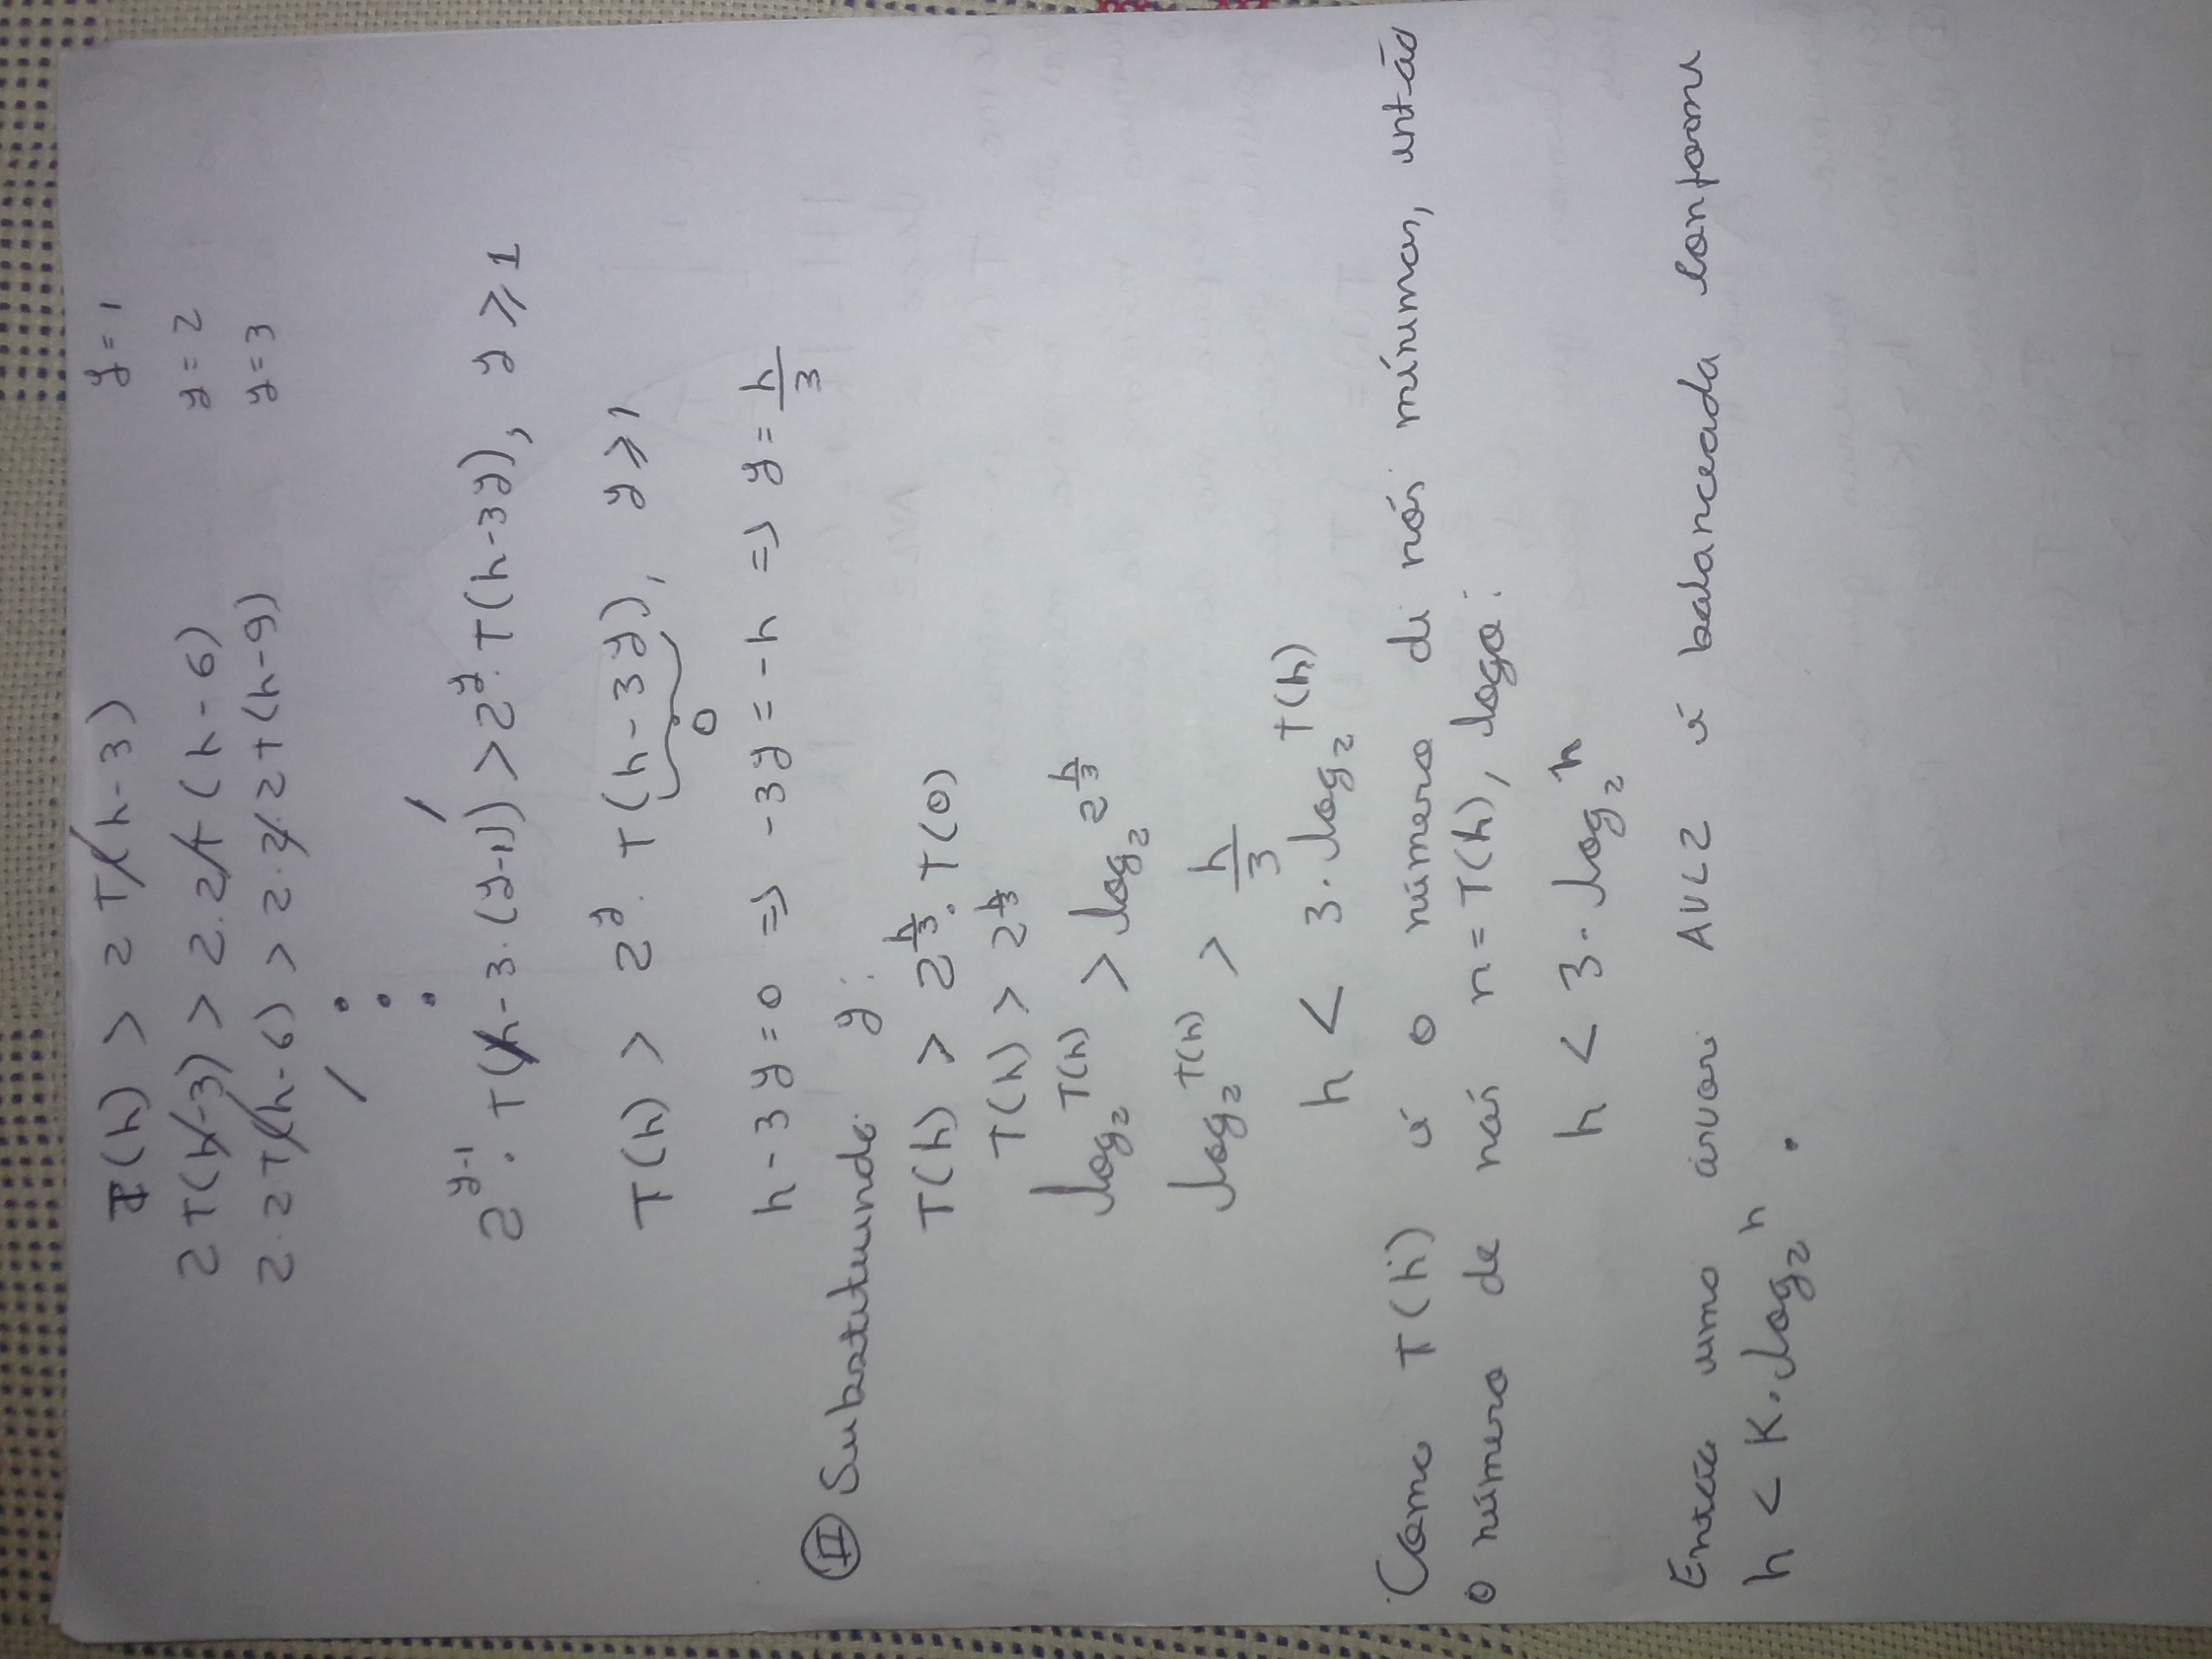 T(h) > 2T(h-3) y=1
2T(h-3) > 2.2T(h-6) y=2
2.2T(h-6) > 2.2.2T(h-9) y=3
2^{y-1}.T(h-3.(y-1)) > 2^y.T(h-3y), y ≥ 1
T(h) > 2^y.T(h-3y), y ≥ 1
0
h-3y=0 => -3y=-h => y=h/3
II Substituindo y:
T(h) > 2^{h/3}.T(0)
T(h) > 2^{h/3}
log_2^{T(h)} > log_2 2^{h/3}
log_2^{T(h)} > h/3
h < 3.log_2^{T(h)}
Como T(h) é o número di nós mínimos, então
o número de nós n=T(h), logo:
h < 3.log_2^n
Então uma árvore AVL2 é balanceada conforme
h < K.log_2^n.